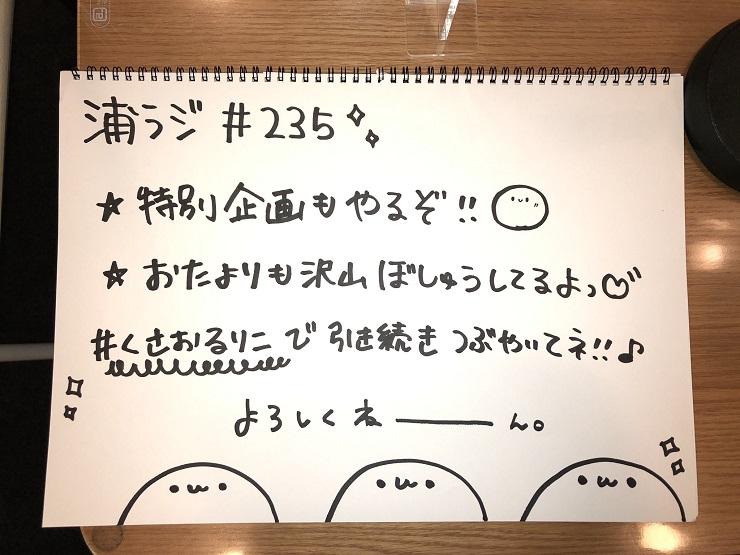 浦ラジ #235
★ 特別企画もやるぞ!!
★ おたよりも沢山ぼしゅうしてるよっ♡
#くさおるりこで引き続きつぶやいてネ!!♪
よろしくね――ん。